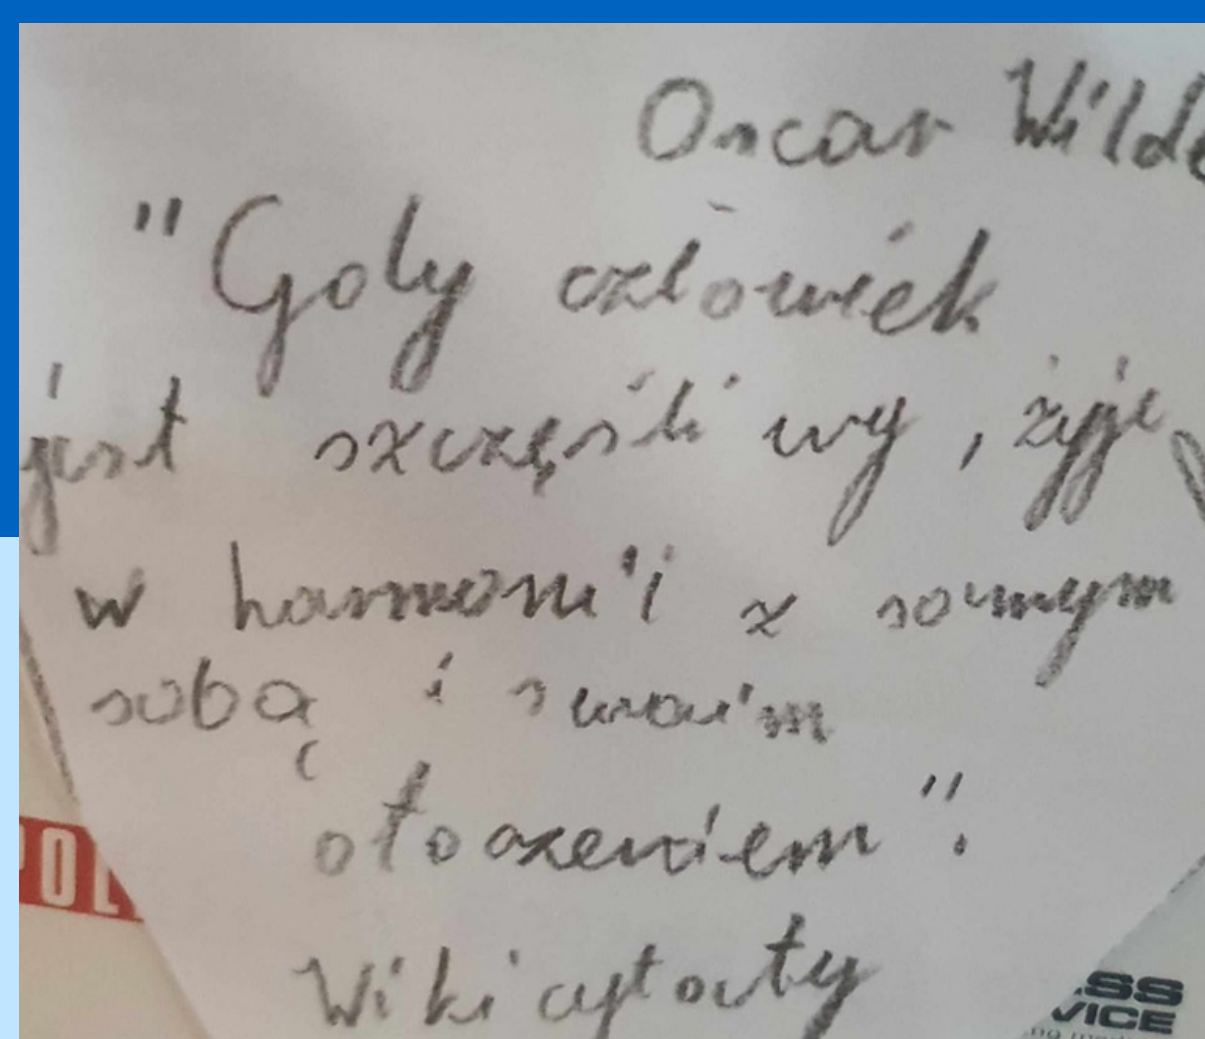 Oscar Wilde
"Goły człowiek
jest szczęśliwy, żyje
w harmonii z samym
sobą i swoim
otoczeniem".
Wikicytaty
POL
SS
VICE